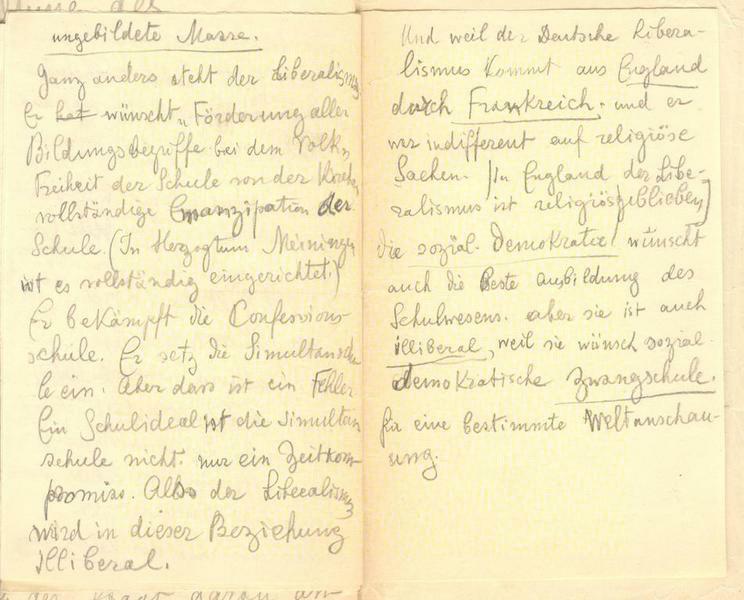 ungebildete Masse.
Ganz anders steht der Liberalismus
Er hat wünscht „Förderung aller
Bildungsbegriffe bei dem Volk,
Freiheit der Schule von der Kirche,
vollständige Emanzipation der
Schule. (In Herzogtum Meiningen
ist es vollständig eingerichtet.)
Er bekämpft die Confessions-
schule. Er setz die Simultanschu
le ein. Aber dass ist ein Fehler
Ein Schulideal ist die Simultan
schule nicht. nur ein Zeitkom
promiss. Also der Liberalismus
wird in dieser Beziehung
illiberal.
Und weil der Deutsche Libera-
lismus kommt aus England
durch Frankreich. und er
war indifferent auf religiöse
Sachen. (In England der Libe-
ralismus ist religiös geblieben)
die sozial. Demokratie wünscht
auch die Beste Ausbildung des
Schulwesens. aber sie ist auch
illiberal, weil sie wünsch sozial-
demokratische Zwangschule.
für eine bestimmte Weltanschau-
ung.